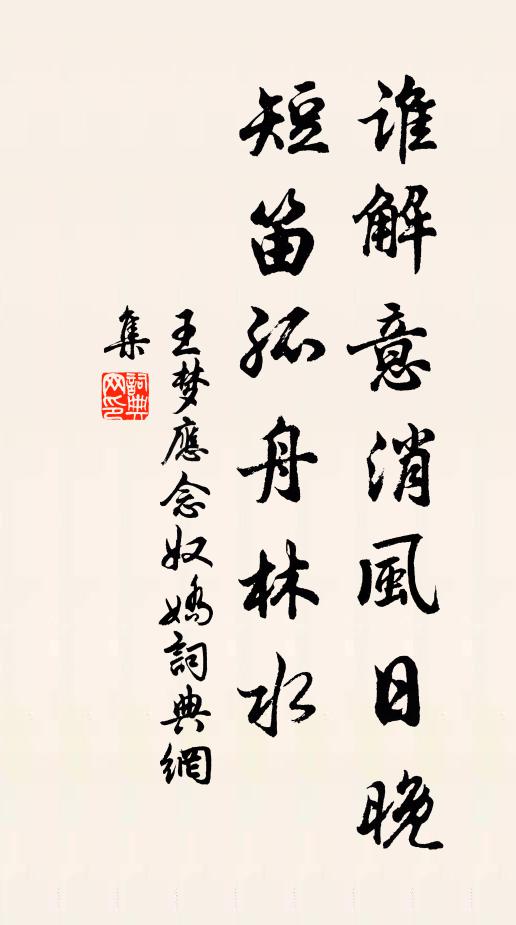 誰解意消風日晚
短笛孤舟林水
王梦應念奴嬌詞典網
集
詞典网印